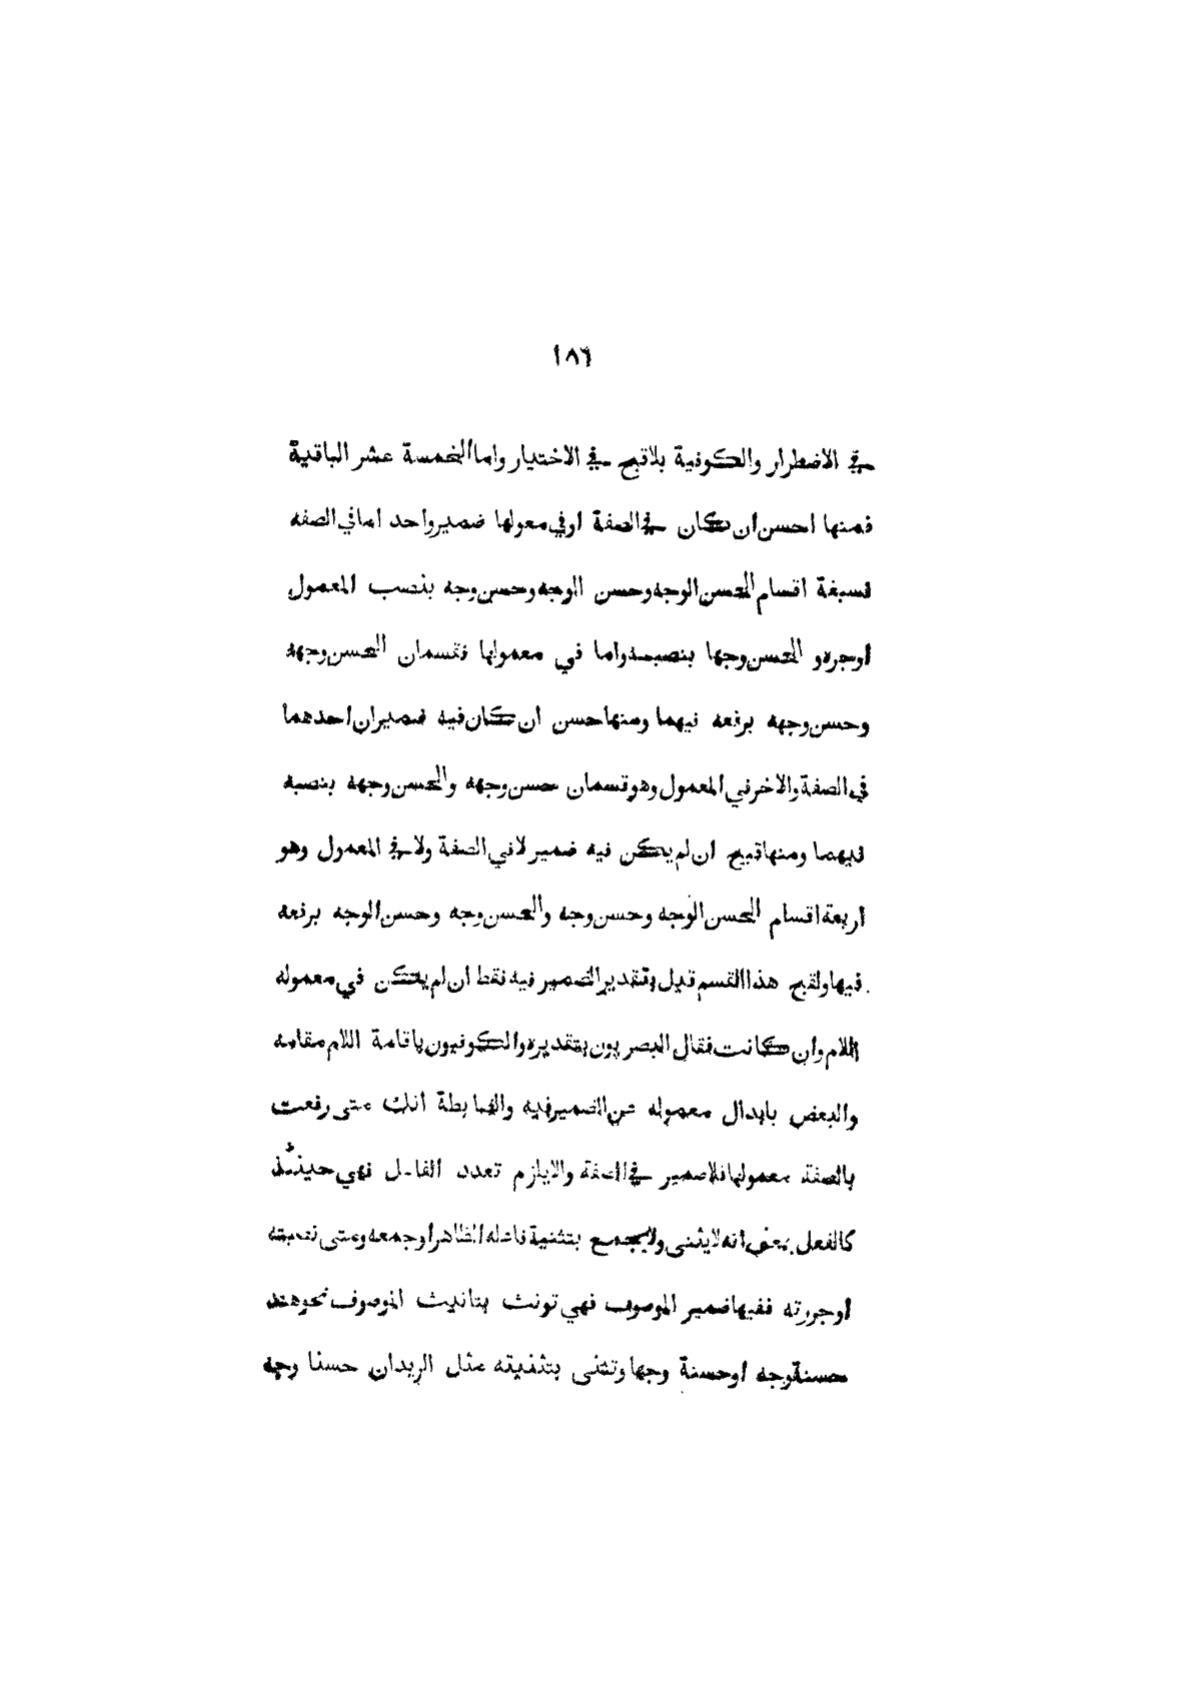 ١٨٦
في الاضطرار والكوفية بلاقبح في الاختيار واما الخمسة عشر الباقية
فمنها احسن ان كان في الصفة اوفي معولها ضمير واحد اما في الصفه
فسبعة اقسام الحسن الوجه وحسن الوجه وحسن وجه بنصب المعمول
اوجره و الحسن وجها بنصبه واما في معمولها فقسمان الحسن وجهه
وحسن وجهه برفعه فيهما ومنها حسن ان كان فيه ضميران احدهما
في الصفة والاخر في المعمول وهو قسمان حسن وجهه والحسن وجهه بنصبه
فيهما ومنها قبيح ان لم يكن فيه ضمير لا في الصفة ولا في المعمول وهو
اربعة اقسام الحسن الوجه وحسن وجه والحسن وجه وحسن الوجه برفعه
فيها ولقبح هذا القسم قيل بتقدير الضمير فيه فقط ان لم يكن في معموله
اللام وان كانت فقال البصريون بتقديره والكوفيون باقامة اللام مقامه
والبعض بابدال معموله عن الضمير فيه والضابطة انك متى رفعت
بالصفة معمولها فلا ضمير في الصفة والايلزم تعدد الفاعل فهي حينئذ
كالفعل بمعنى انه لا يثنى ولا يجمع بتثنية فاعله الظاهر او جمعه ومتى نصبته
اوجررته ففيها ضمير الموصوف فهي تونث بتانيث الموصوف نحو هند
حسنة وجه اوحسنة وجها وتثنى بتثنيته مثل الزيدان حسنا وجه